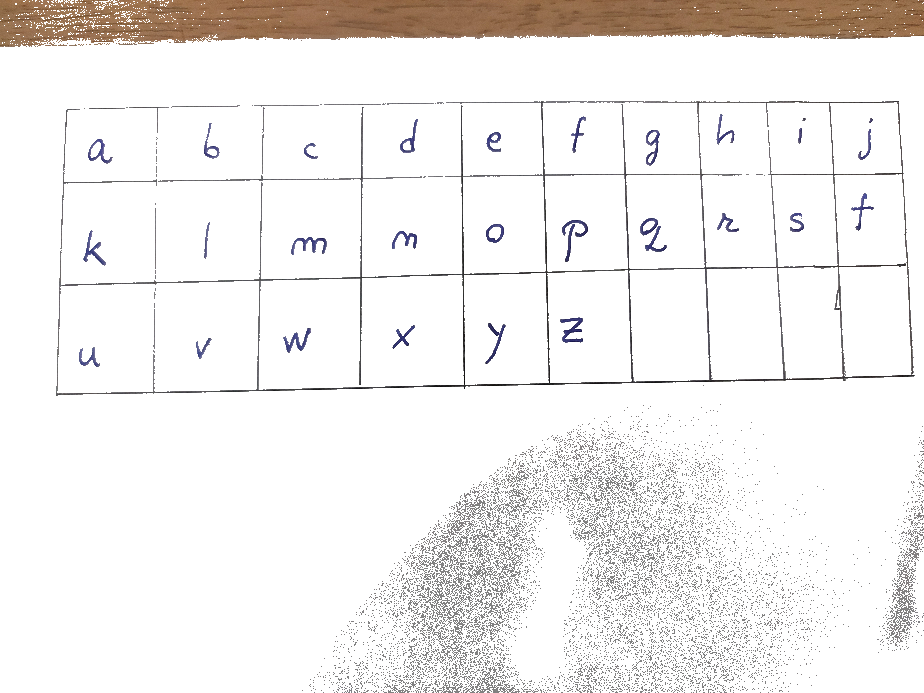 a b c d e f g h i j
k l m n o p q r s f
u v w x y z